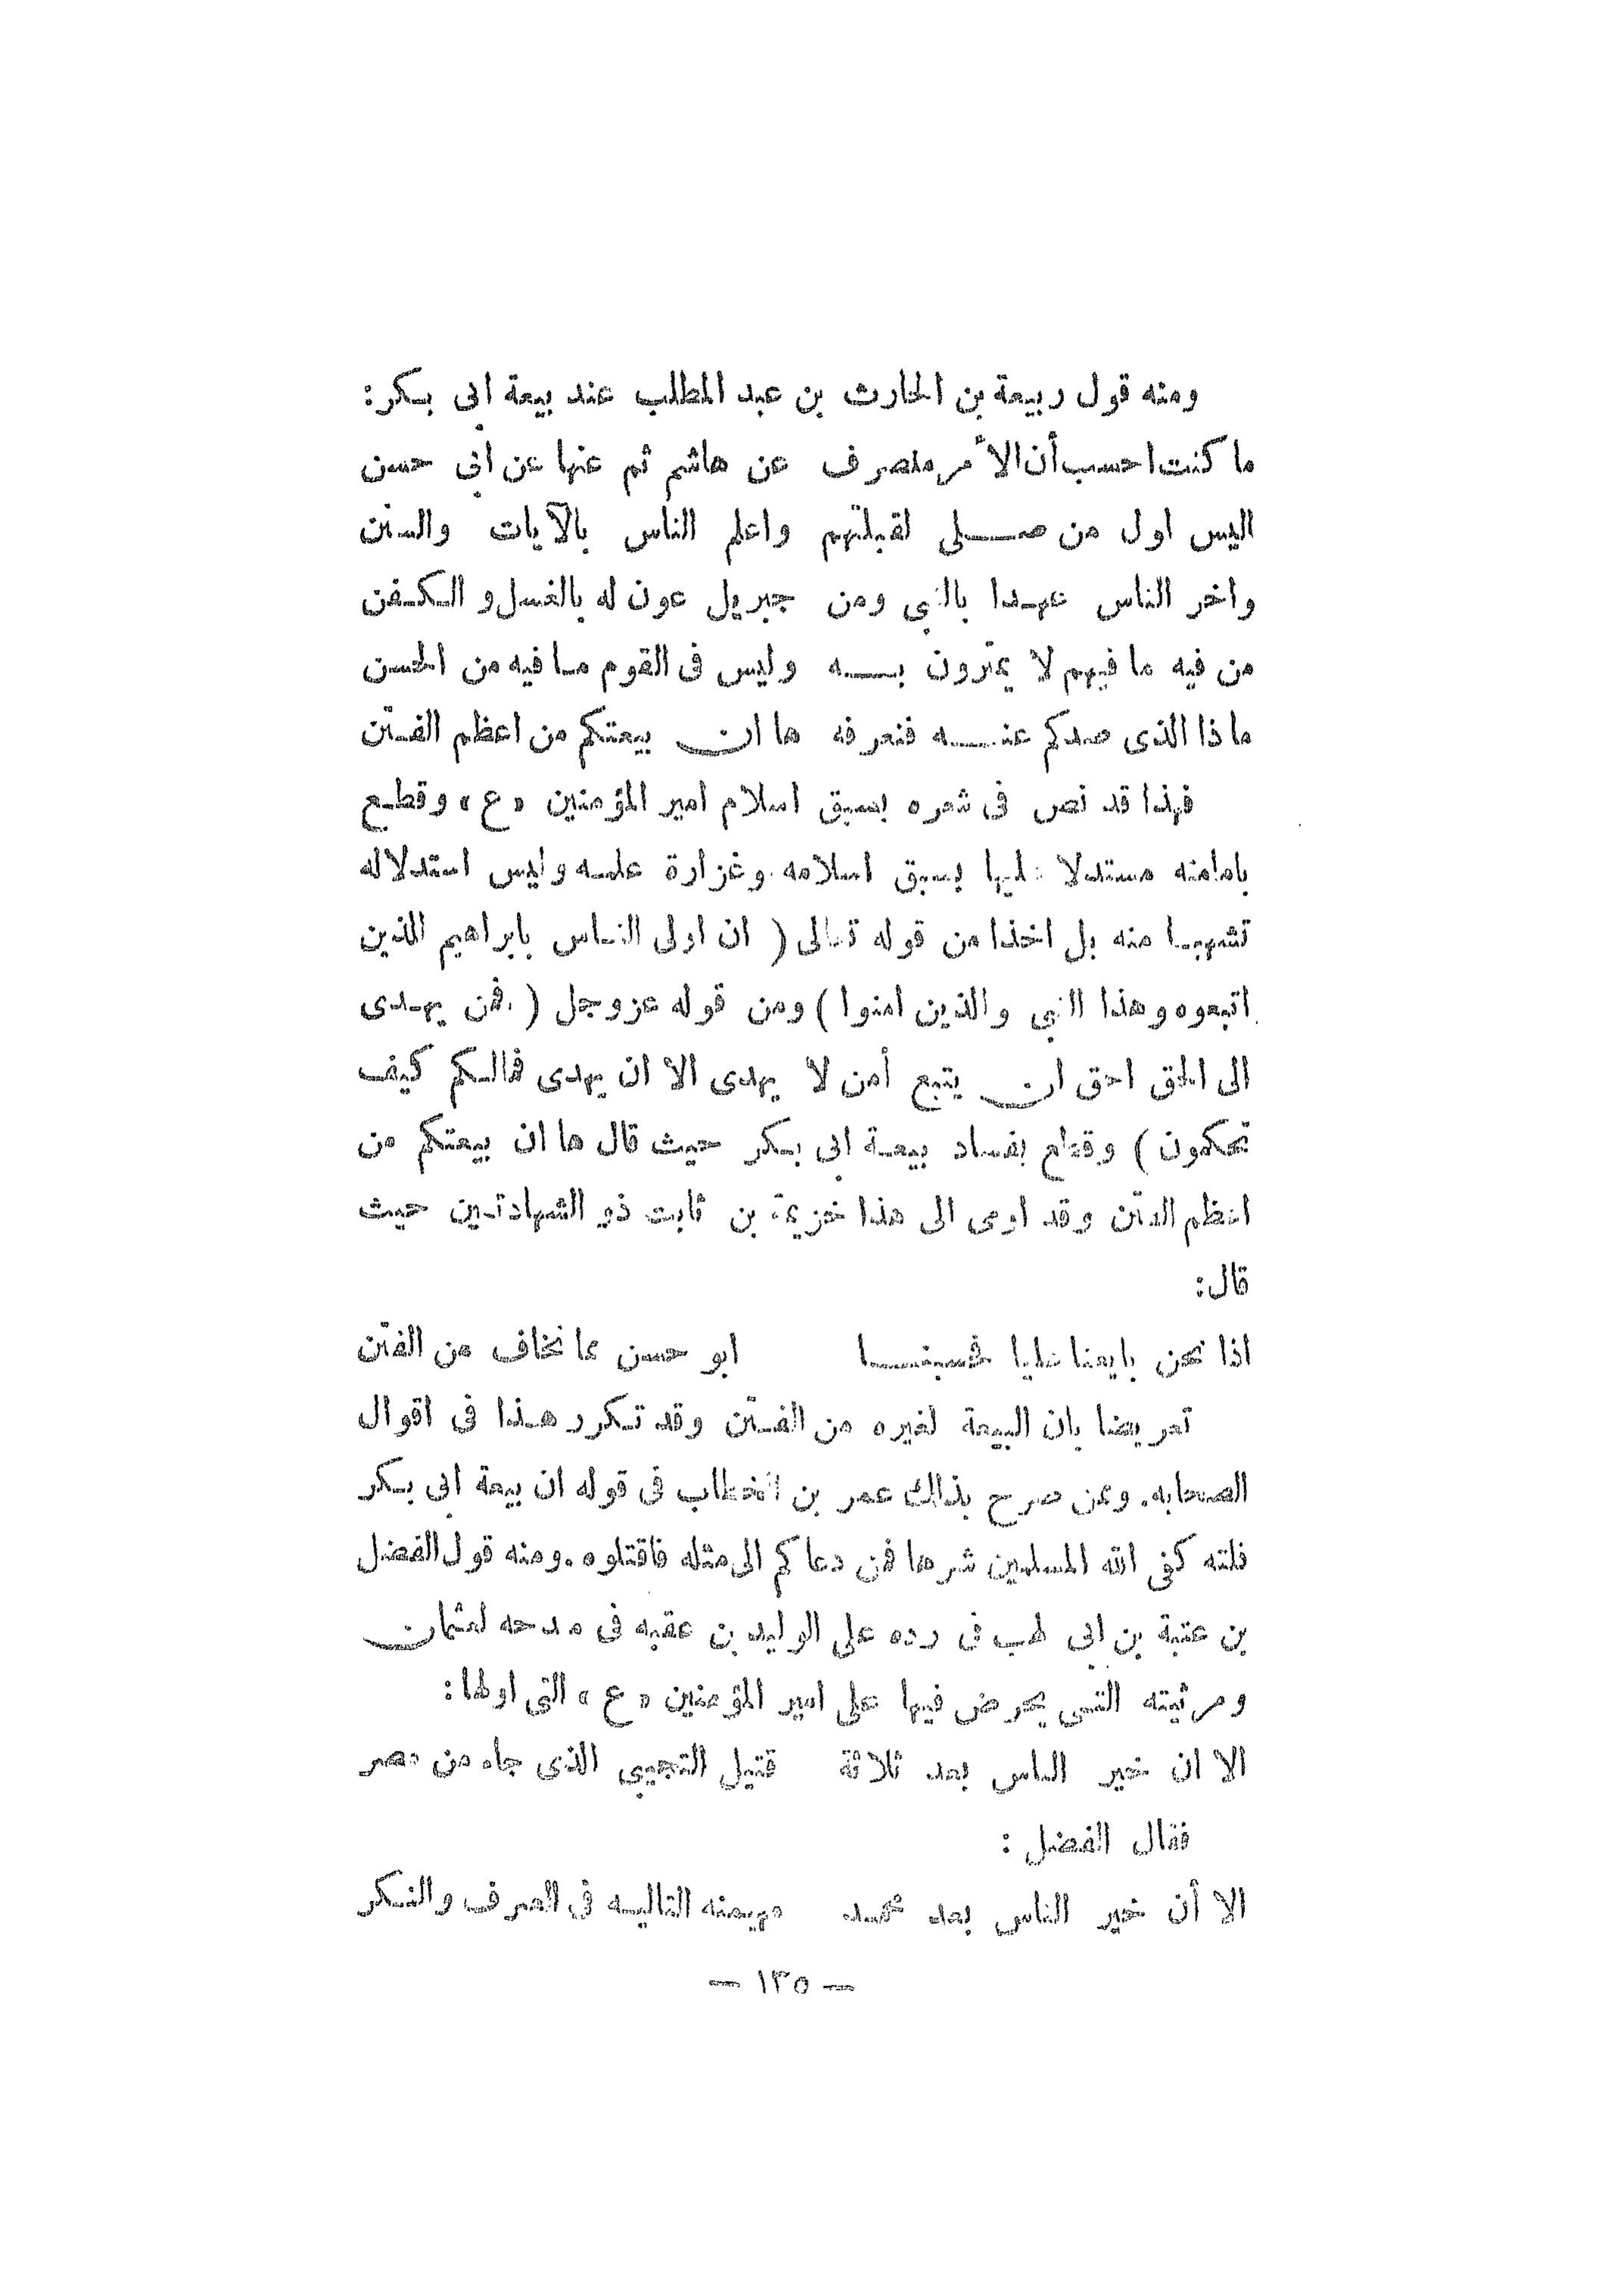 ومنه قول ربيعة بن الحارث بن عبد المطلب عند بيعة ابى بكر:
ما كنت احسب أن الأمر منصرف عن هاشم ثم عنها عن ابى حسن
اليس اول من صلى لقبلتهم واعلم الناس بالآيات والسنن
واخر الناس عهدا بالنبي ومن جبريل عون له بالغسل و الكفن
من فيه ما فيهم لا يمترون به وليس فى القوم ما فيه من الحسن
ما ذا الذى صدكم عنه فنعرفه ها ان بيعتكم من اعظم الفتن
فهذا قد نص فى شعره بسبق اسلام امير المؤمنين «ع» وقطع
بامامته مستدلا عليها بسبق اسلامه وغزارة علمه وليس استدلاله
تشهيا منه بل اخذا من قوله تعالى ( ان اولى الناس بابراهيم الذين
اتبعوه وهذا النبي والذين امنوا ) ومن قوله عز وجل ( فمن يهدى
الى الحق احق ان يتبع أمن لا يهدى الا ان يهدى فمالكم كيف
تحكمون ) وقطع بفساد بيعة ابى بكر حيث قال ها ان بيعتكم من
اعظم الفتن وقد اومى الى هذا خزيمة بن ثابت ذو الشهادتين حيث
قال:
اذا نحن بايعنا عليا فحسبنا ابو حسن مما نخاف من الفتن
تعريضا بان البيعة لغيره من الفتن وقد تكرر هذا فى اقوال
الصحابه. وممن صرح بذالك عمر بن الخطاب فى قوله ان بيعة ابى بكر
فلته كفى الله المسلمين شرها فمن دعاكم الى مثله فاقتلوه. ومنه قول الفضل
بن عتبة بن ابى لهب فى رده على الوليد بن عقبه فى مدحه لعثمان
ومرثيته التى يحرض فيها على امير المؤمنين «ع» التى اولها:
الا ان خير الناس بعد ثلاثة قتيل التجيبي الذى جاء من مصر
فقال الفضل :
الا أن خير الناس بعد محمد مهيمنه التاليه فى العرف والنكر
— ١٣٥ —